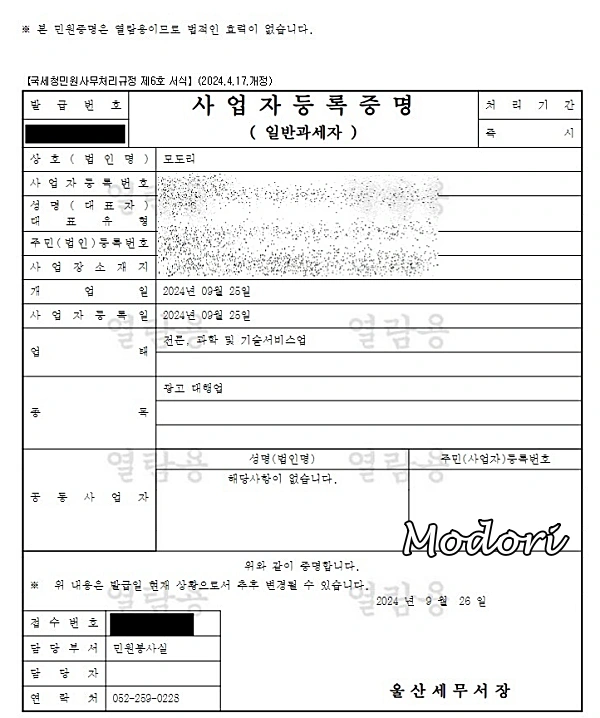 ※ 본 민원증명은 열람용이므로 법적인 효력이 없습니다.
【국세청민원사무처리규정 제6호 서식】(2024.4.17.개정)
발 급 번 호
사 업 자 등 록 증 명
( 일반과세자 )
처 리 기 간
즉 시
상 호 ( 법 인 명 ) 모도리
사 업 자 등 록 번 호
성 명 ( 대 표 자 )
대 표 유 형
주민(법인)등록번호
사 업 장 소 재 지
개 업 일 2024년 09월 25일
사 업 자 등 록 일 2024년 09월 25일
업 태 전문, 과학 및 기술서비스업
종 목 광고 대행업
공 동 사 업 자
성명(법인명) 주민(사업자)등록번호
해당사항이 없습니다.
Modori
위와 같이 증명합니다.
※ 위 내용은 발급일 현재 상황으로서 추후 변경될 수 있습니다.
2024 년 9 월 26 일
접 수 번 호
담 당 부 서 민원봉사실
담 당 자
연 락 처 052-259-0228
울 산 세 무 서 장
열람용
열람용
열람용
열람용
열람용
열람용
열람용
열람용